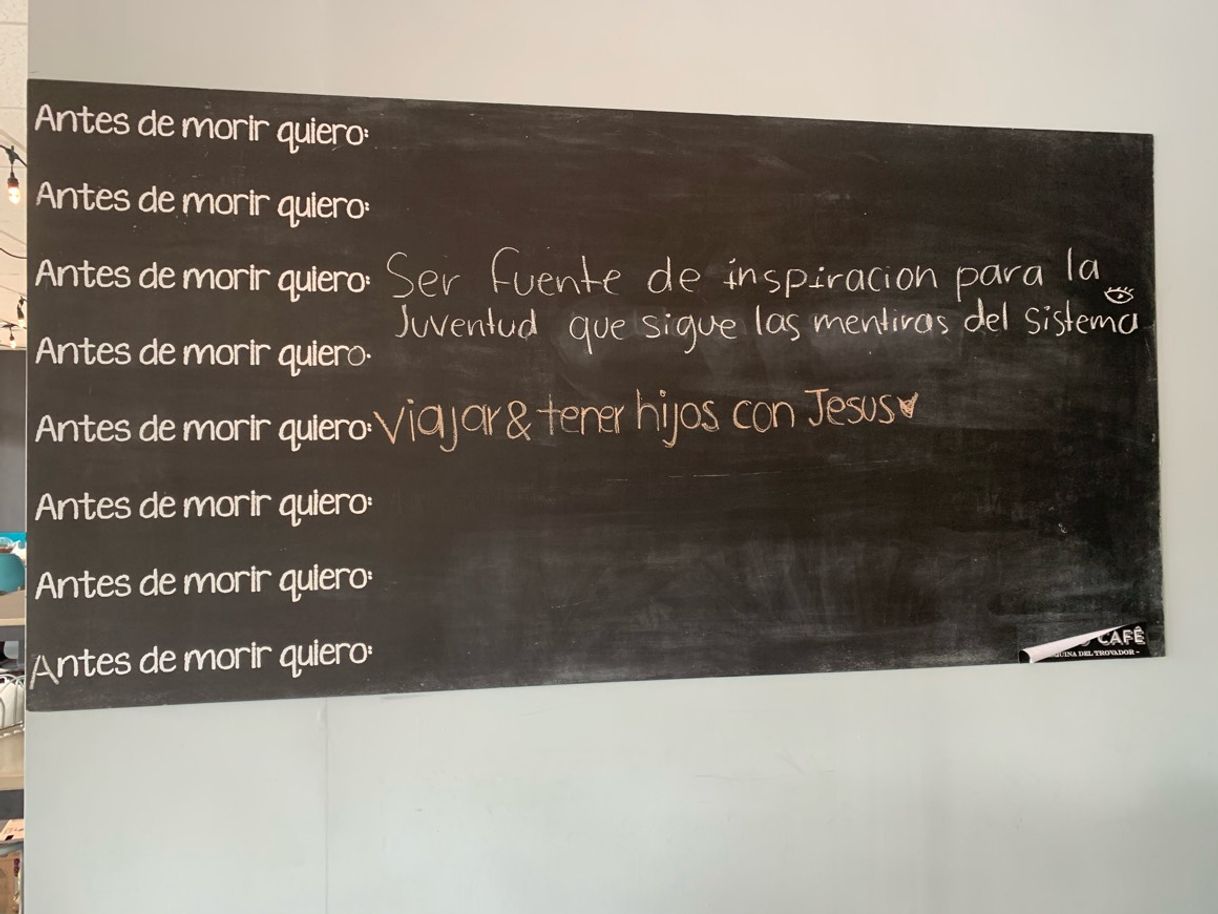 Antes de morir quiero:
Antes de morir quiero:
Antes de morir quiero: Ser fuente de inspiracion para la
Juventud que sigue las mentiras del sistema
Antes de morir quiero:
Antes de morir quiero: Viajar & tener hijos con Jesus
Antes de morir quiero:
Antes de morir quiero:
Antes de morir quiero:
CAFÉ
DEL TROVADOR -